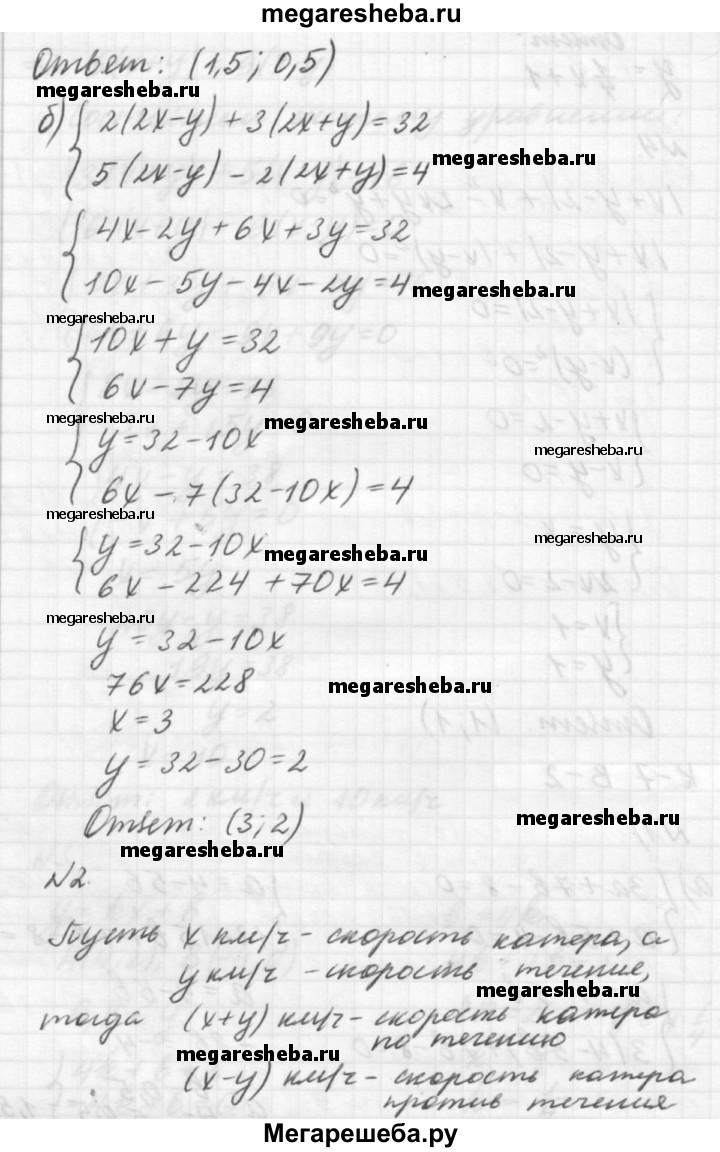 megaresheba.ru
Ответ: (1,5; 0,5)
megaresheba.ru
б) { 2(2x-y) + 3(2x+y) = 32
megaresheba.ru
5(2x-y) - 2(2x+y) = 4
{ 4x-2y+6x+3y=32
10x-5y-4x-2y=4
megaresheba.ru
megaresheba.ru
{ 10x+y=32
6x-7y=4
megaresheba.ru
megaresheba.ru
{ y=32-10x
megaresheba.ru
6x-7(32-10x)=4
megaresheba.ru
{ y=32-10x
megaresheba.ru
megaresheba.ru
6x-224+70x=4
megaresheba.ru
y=32-10x
76x=228
megaresheba.ru
x=3
y=32-30=2
Ответ: (3; 2)
megaresheba.ru
megaresheba.ru
№2.
Пусть x км/ч - скорость катера, а
y км/ч - скорость течение,
megaresheba.ru
тогда (x+y) км/ч - скорость катера
по течению
megaresheba.ru
(x-y) км/ч - скорость катера
против течения
Мегарешеба.ру